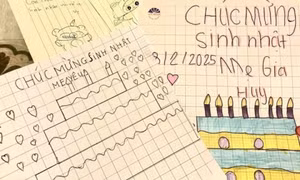 CHÚC MỪNG SINH NHẬT
MẸ YÊU
CHÚC MỪNG
Sinh nhật
8/12/2025
Mẹ Gia
Huy